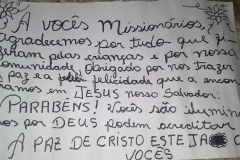 A VOCÊS MISSIONÁRIOS,
agradecemos por tudo que fi
zeram pelas crianças e por nossa
comunidade, obrigado por nos trazer
a paz e a felicidade que a encon
tramos em JESUS nosso Salvador.
PARABÉNS! Vocês são ilumina
dos por DEUS podem acreditar
A PAZ DE CRISTO ESTEJA
VOCÊS